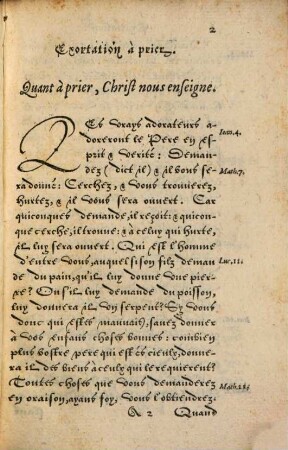 2
Exortation à prier.
Quant à prier, Christ nous enseigne.
LEs vrays adorateurs a-
doreront le Pere en es-
prit & verité: Deman-
dez (dict il) & il vous se-
ra donné: Cerchez, & vous trouverez,
hurtez, & il vous sera ouvert. Car
quiconques demande, il reçoit: & quicon-
que cerche, il trouve: & à celuy qui hurte,
il luy sera ouvert. Qui est l'homme
d'entre vous, auquel si son filz deman-
de du pain, qu'il luy donne une pier-
re? Ou s'il luy demande du poisson,
luy donnera il un serpent? Si vous
donc qui estes mauvais, savez donner
à voz enfans choses bonnes: combien
plus vostre pere qui est és cieulx, donne-
ra il des biens à ceulx qui le requierent?
Toutes choses que vous demanderez
en oraison, ayans foy, vous l'obtiendrez:
Ioan.4.
Math.7.
Luc.11.
A 2 Quand